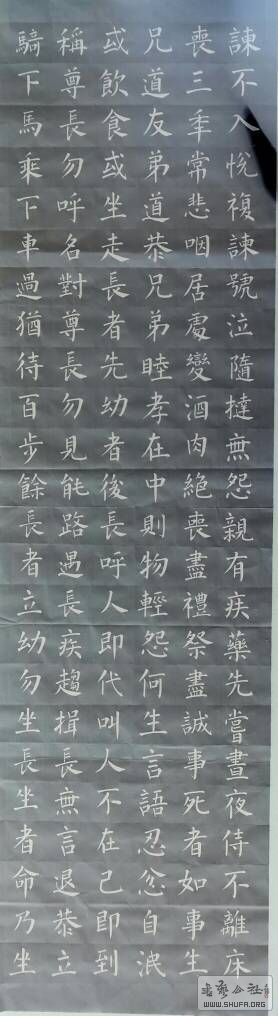 諫不入悅複諫號泣隨撻無怨親有疾藥先嘗晝夜侍不離床
喪三年常悲咽居處變酒肉絕喪盡禮祭盡誠事死者如事生
兄道友弟道恭兄弟睦孝在中則物輕怨何生言語忍忿自泯
或飲食或坐走長者先幼者後長呼人即代叫人不在己即到
稱尊長勿呼名對尊長勿見能路遇長疾趨揖長無言退恭立
騎下馬乘下車過猶待百步餘長者立幼勿坐長坐者命乃坐
書藝公社
WWW.SHUFA.ORG